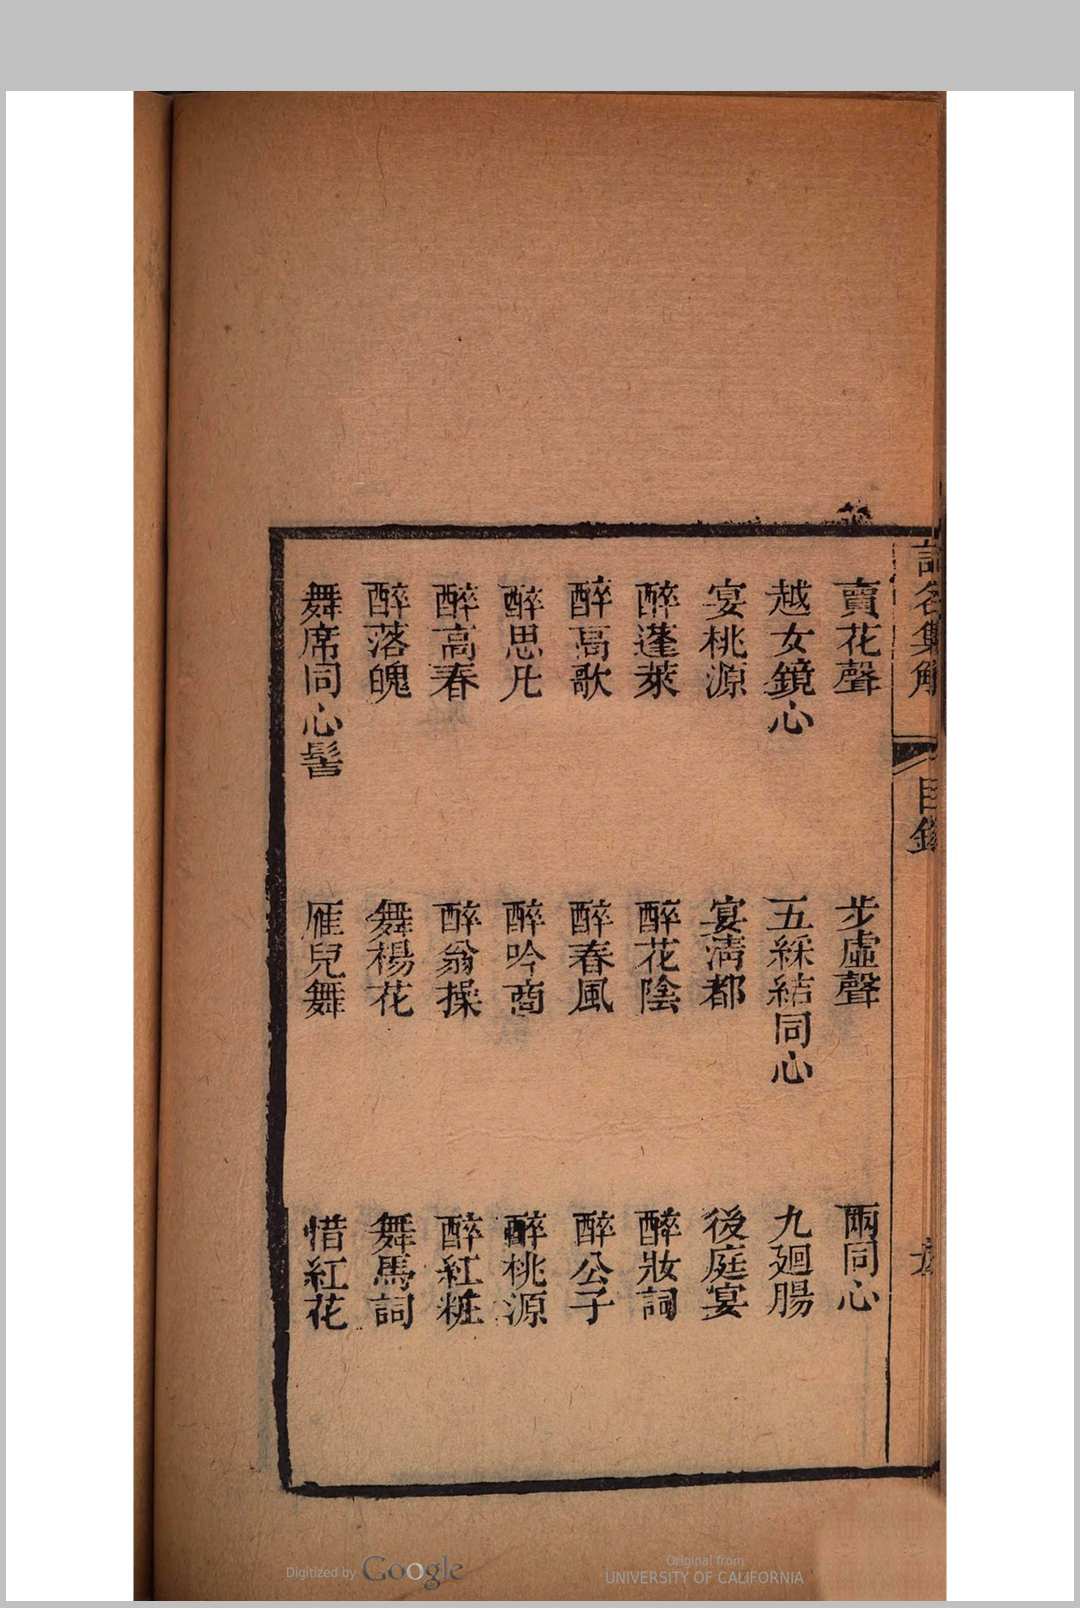 詞名集解
目錄
賣花聲 步虛聲 兩同心
越女鏡心 五綵結同心 九廻腸
宴桃源 宴淸都 後庭宴
醉蓬萊 醉花陰 醉妝詞
醉高歌 醉春風 醉公子
醉思凡 醉吟商 醉桃源
醉高春 醉翁操 醉紅粧
醉落魄 舞楊花 舞馬詞
舞席同心髻 雁兒舞 惜紅花
Digitized by Google
Original from
UNIVERSITY OF CALIFORNIA